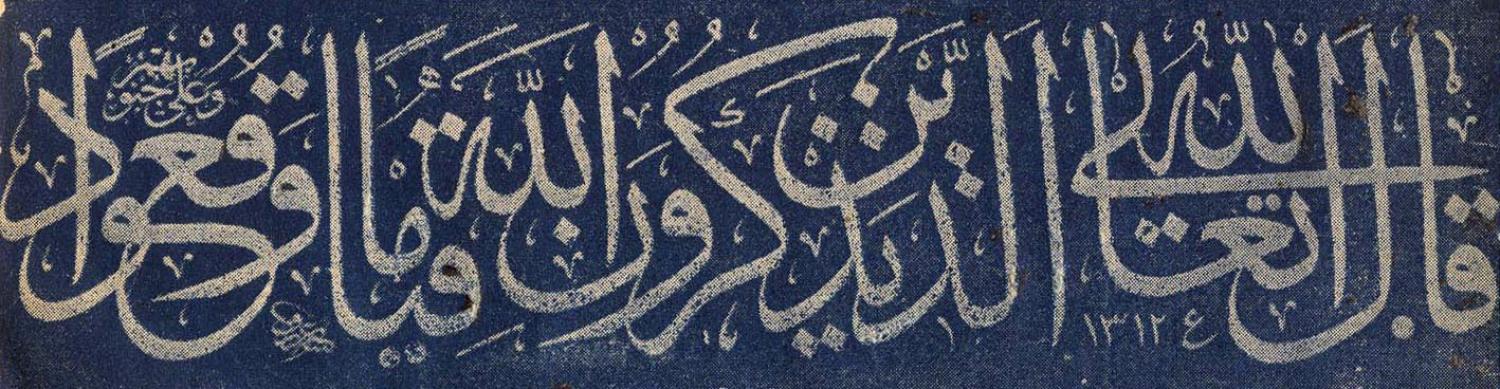 قال الله تعالى الذين يذكرون الله قياما وقعودا وعلى جنوبهم
ع ١٣١٢